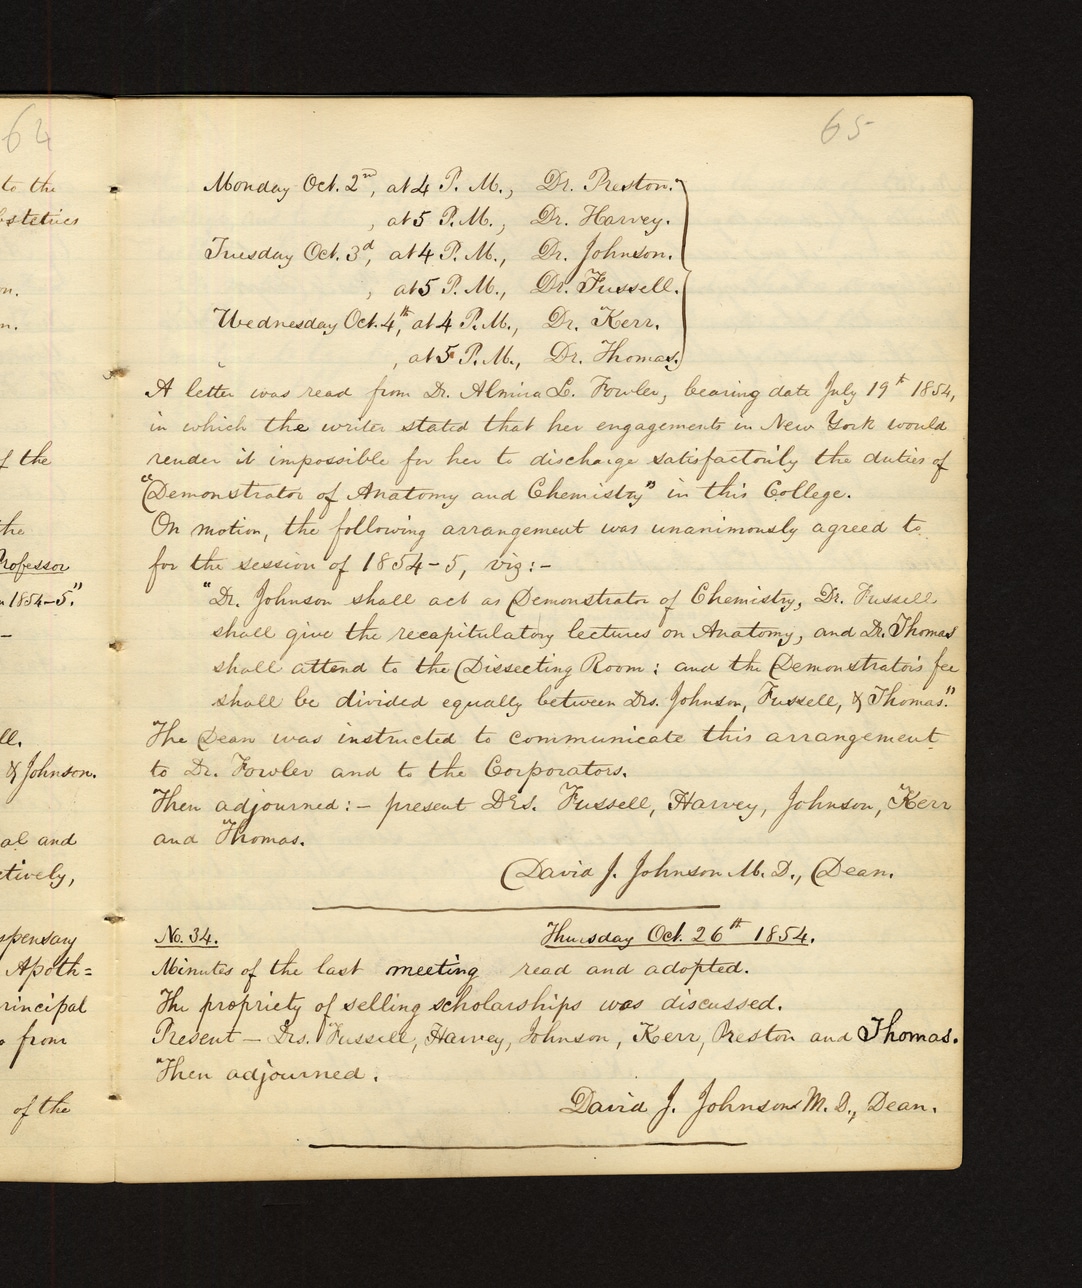 64
to the
bstetrics
on.
n.
of the
the
Professor
n 1854-5."
ll.
& Johnson.
al and
ctively,
spensary
Apoth=
rincipal
from
of the
65
Monday Oct. 2nd, at 4 P. M., Dr. Preston.
, at 5 P. M., Dr. Harvey.
Tuesday Oct. 3d, at 4 P. M., Dr. Johnson.
, at 5 P. M., Dr. Fussell.
Wednesday Oct. 4th, at 4 P. M., Dr. Kerr.
, at 5 P. M., Dr. Thomas.
A letter was read from Dr. Almira L. Fowler, bearing date July 19th 1854,
in which the writer stated that her engagements in New York would
render it impossible for her to discharge satisfactorily the duties of
"Demonstrator of Anatomy and Chemistry" in this College.
On motion, the following arrangement was unanimously agreed to
for the session of 1854-5, viz:-
"Dr. Johnson shall act as Demonstrator of Chemistry, Dr. Fussell
shall give the recapitulatory lectures on Anatomy, and Dr. Thomas
shall attend to the Dissecting Room: and the Demonstrator's fee
shall be divided equally between Drs. Johnson, Fussell, & Thomas."
The Dean was instructed to communicate this arrangement
to Dr. Fowler and to the Corporators.
Then adjourned:- present Drs. Fussell, Harvey, Johnson, Kerr
and Thomas.
David J. Johnson M. D., Dean.
No. 34. Thursday Oct. 26th 1854.
Minutes of the last meeting read and adopted.
The propriety of selling scholarships was discussed.
Present - Drs. Fussell, Harvey, Johnson, Kerr, Preston and Thomas.
Then adjourned.
David J. Johnson M. D., Dean.